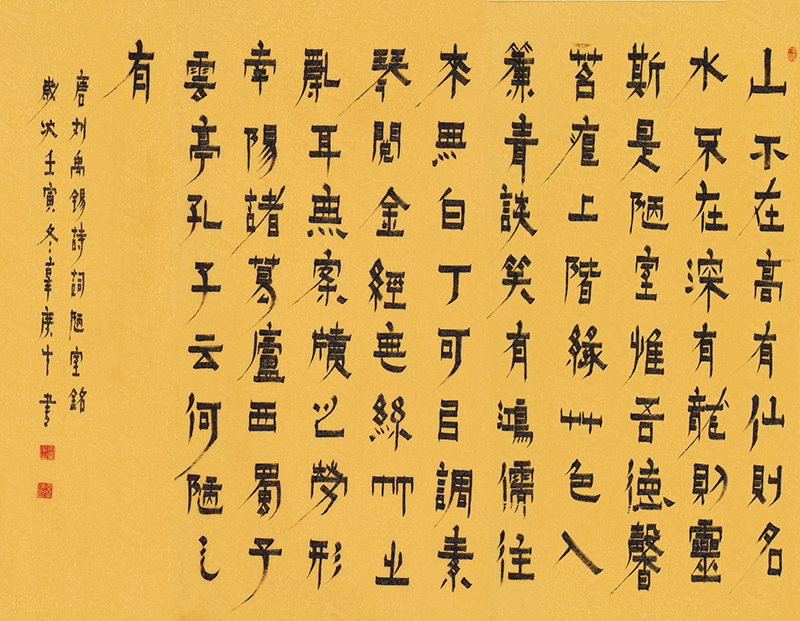 山不在高有仙則名
水不在深有龍則靈
斯是陋室惟吾德馨
苔痕上階綠艸色入
簾青談笑有鴻儒往
來無白丁可㠯調素
琴閱金經無絲竹之
亂耳無案牘之勞形
南陽諸葛廬西蜀子
雲亭孔子云何陋之
有
唐刘禹錫詩詞陋室銘
歲次壬寅冬書